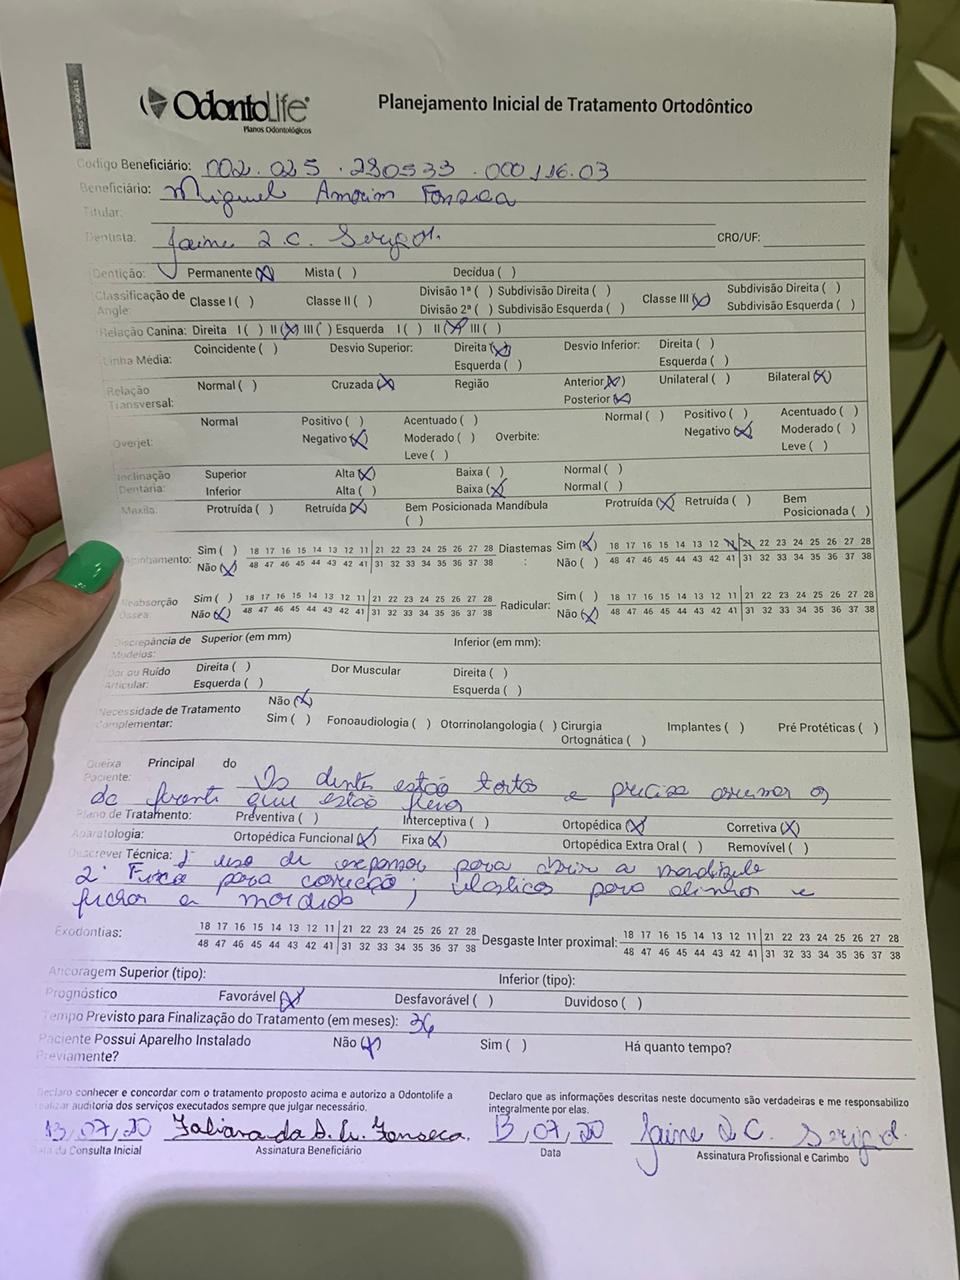 OdontoLife
Planos Odontológicos
Planejamento Inicial de Tratamento Ortodôntico
Código Beneficiário: 002.025.230533.000116.03
Beneficiário: Miguel Amorim Fonseca
Titular:
Dentista: Jaime CRO/UF:
Dentição: Permanente (X) Mista ( ) Decídua ( )
Classificação de Angle: Classe I ( ) Classe II ( ) Divisão 1ª ( ) Subdivisão Direita ( ) Classe III (X) Subdivisão Direita ( )
Divisão 2ª ( ) Subdivisão Esquerda ( ) Subdivisão Esquerda ( )
Relação Canina: Direita I ( ) II (X) III ( ) Esquerda I ( ) II (X) III ( )
Linha Média: Coincidente ( ) Desvio Superior: Direita (X) Desvio Inferior: Direita ( )
Esquerda ( ) Esquerda ( )
Relação Transversal: Normal ( ) Cruzada (X) Região Anterior (X) Unilateral ( ) Bilateral (X)
Posterior (X)
Overjet: Normal Positivo ( ) Acentuado ( ) Normal ( ) Positivo ( ) Acentuado ( )
Negativo (X) Moderado ( ) Overbite: Negativo (X) Moderado ( )
Leve ( ) Leve ( )
Inclinação Dentária: Superior Alta (X) Baixa ( ) Normal ( )
Inferior Alta ( ) Baixa (X) Normal ( )
Maxila: Protruída ( ) Retruída (X) Bem Posicionada ( ) Mandíbula Protruída (X) Retruída ( ) Bem Posicionada ( )
Apinhamento: Sim ( ) 18 17 16 15 14 13 12 11 21 22 23 24 25 26 27 28 Diastemas : Sim (X) 18 17 16 15 14 13 12 11 21 22 23 24 25 26 27 28
Não (X) 48 47 46 45 44 43 42 41 31 32 33 34 35 36 37 38 Não ( ) 48 47 46 45 44 43 42 41 31 32 33 34 35 36 37 38
Reabsorção Óssea: Sim ( ) 18 17 16 15 14 13 12 11 21 22 23 24 25 26 27 28 Radicular: Sim ( ) 18 17 16 15 14 13 12 11 21 22 23 24 25 26 27 28
Não (X) 48 47 46 45 44 43 42 41 31 32 33 34 35 36 37 38 Não (X) 48 47 46 45 44 43 42 41 31 32 33 34 35 36 37 38
Discrepância de Modelos: Superior (em mm) Inferior (em mm):
Dor ou Ruído Articular: Direita ( ) Dor Muscular Direita ( )
Esquerda ( ) Esquerda ( )
Necessidade de Tratamento Complementar: Não (X)
Sim ( ) Fonoaudiologia ( ) Otorrinolangologia ( ) Cirurgia Ortognática ( ) Implantes ( ) Pré Protéticas ( )
Queixa Principal do
Paciente: Os dents estão tortos e precisa arrumar os
da frente que estão fora
Plano de Tratamento: Preventiva ( ) Interceptiva ( ) Ortopédica (X) Corretiva (X)
Aparatologia: Ortopédica Funcional (X) Fixa (X) Ortopédica Extra Oral ( ) Removível ( )
Descrever Técnica: 1º uso de expansor para abrir a mandibula
2º Fixa para correção, elásticos para alinhar e
fechar a mordida
Exodontias: 18 17 16 15 14 13 12 11 21 22 23 24 25 26 27 28 Desgaste Inter proximal: 18 17 16 15 14 13 12 11 21 22 23 24 25 26 27 28
48 47 46 45 44 43 42 41 31 32 33 34 35 36 37 38 48 47 46 45 44 43 42 41 31 32 33 34 35 36 37 38
Ancoragem Superior (tipo): Inferior (tipo):
Prognóstico Favorável (X) Desfavorável ( ) Duvidoso ( )
Tempo Previsto para Finalização do Tratamento (em meses): 36
Paciente Possui Aparelho Instalado Previamente? Não (X) Sim ( ) Há quanto tempo?
Declaro conhecer e concordar com o tratamento proposto acima e autorizo a Odontolife a
realizar auditoria dos serviços executados sempre que julgar necessário.
Declaro que as informações descritas neste documento são verdadeiras e me responsabilizo
integralmente por elas.
13,07,20 Fonseca. 13,07,20 Jaime
Data da Consulta Inicial Assinatura Beneficiário Data Assinatura Profissional e Carimbo